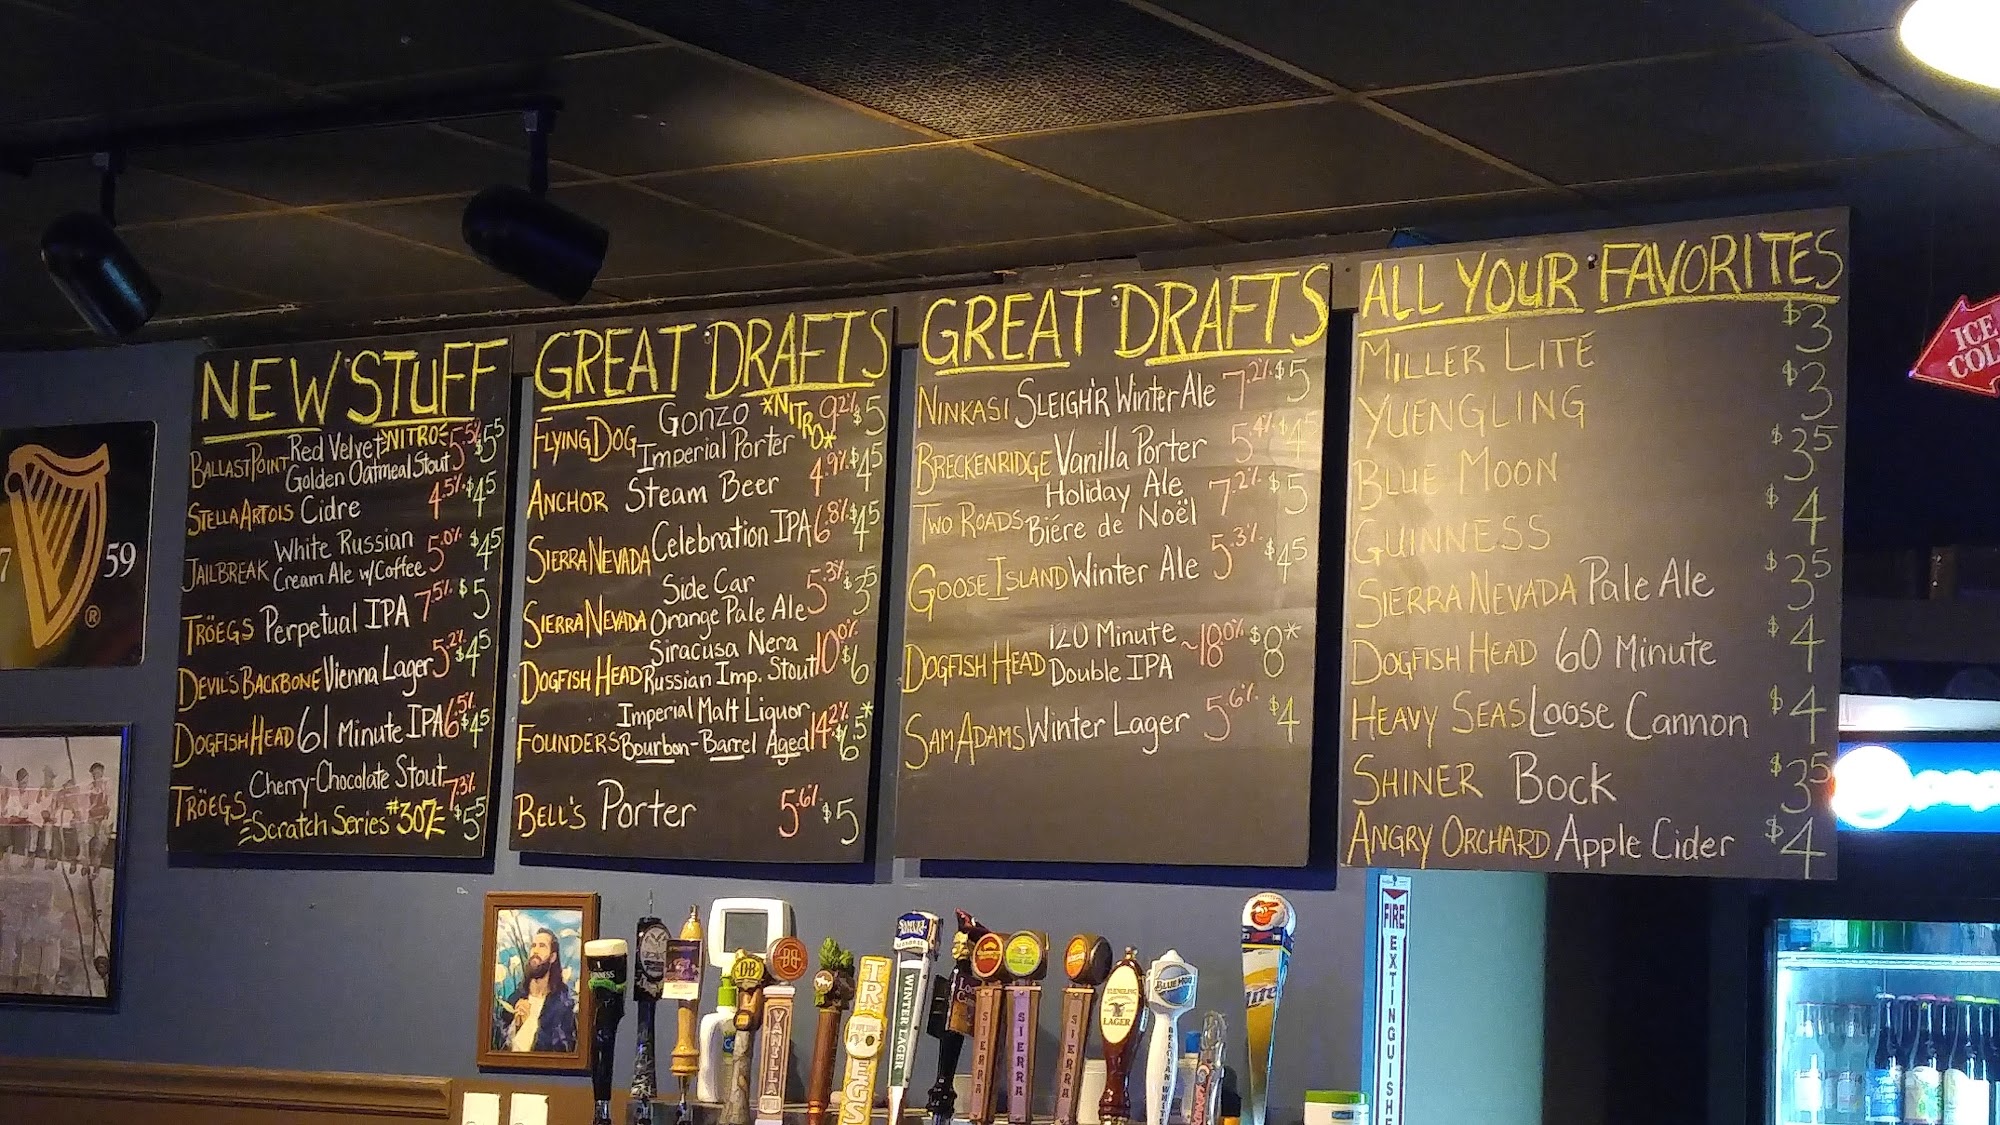 NEW STUFF
BALLAST POINT Red Velvet *NITRO* 5.5% $5.5
Golden Oatmeal Stout
STELLA ARTOIS Cidre 4.5% $4.5
JAILBREAK White Russian 5.0% $4.5
Cream Ale w/Coffee
TRÖEGS Perpetual IPA 7.5% $5
DEVIL'S BACKBONE Vienna Lager 5.2% $4.5
DOGFISH HEAD 61 Minute IPA 6.5% $4.5
TRÖEGS Cherry-Chocolate Stout 7.3% $5.5
Scratch Series #307
GREAT DRAFTS
FLYING DOG Gonzo *NITRO* 9.2% $5
Imperial Porter
ANCHOR Steam Beer 4.9% $4.5
SIERRA NEVADA Celebration IPA 6.8% $4.5
SIERRA NEVADA Side Car 5.3% $3.5
Orange Pale Ale
DOGFISH HEAD Siracusa Nera 10.0% $6
Russian Imp. Stout
FOUNDERS Imperial Malt Liquor 14.2% $6.5*
Bourbon-Barrel Aged
BELL'S Porter 5.6% $5
GREAT DRAFTS
NINKASI SLEIGH'R Winter Ale 7.2% $5
BRECKENRIDGE Vanilla Porter 5.4% $4.5
TWO ROADS Holiday Ale 7.2% $5
Biére de Noël
GOOSE ISLAND Winter Ale 5.3% $4.5
DOGFISH HEAD 120 Minute ~18.0% $8*
Double IPA
SAM ADAMS Winter Lager 5.6% $4
ALL YOUR FAVORITES
MILLER LITE $3
YUENGLING $3
BLUE MOON $3.5
GUINNESS $4
SIERRA NEVADA Pale Ale $3.5
DOGFISH HEAD 60 Minute $4
HEAVY SEAS Loose Cannon $4
SHINER BOCK $3.5
ANGRY ORCHARD Apple Cider $4
ICE
COL
59
®
GUINNESS
DB
VANILLA
TRÖEGS
SAMUEL ADAMS
WINTER LAGER
SIERRA
SIERRA
SIERRA
YUENGLING
LAGER
BLUE MOON
BELGIAN WHITE
Lite
FIRE
EXTINGUISHE